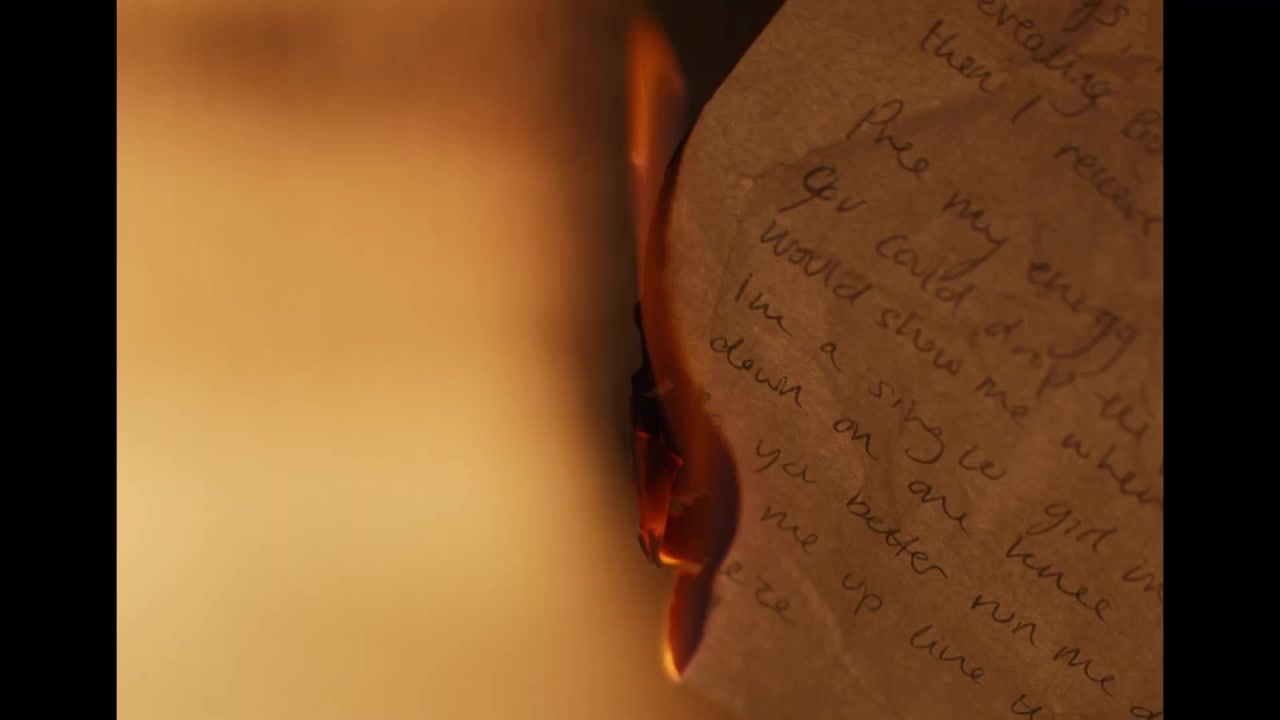 then I
Free my energy
You could drop the
would show me when
Im a single girl
down on one knee
ya better run me
me up line
eze